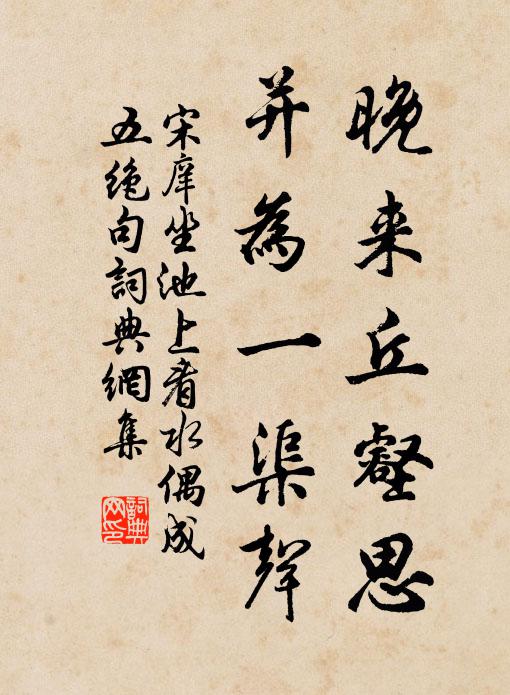 晚来丘壑思
并為一渠聲
宋庠坐池上看水偶成
五绝句詞典網集
詞典
网印